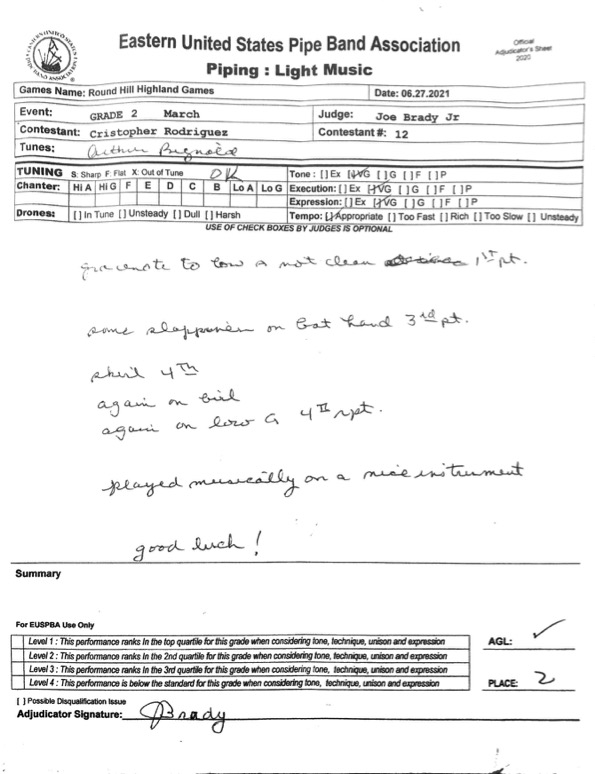 EASTERN UNITED STATES PIPE BAND ASSOCIATION
Eastern United States Pipe Band Association
Official
Adjudicator's Sheet
2020
Piping : Light Music
Games Name: Round Hill Highland Games Date: 06.27.2021
Event: GRADE 2 March Judge: Joe Brady Jr
Contestant: Cristopher Rodriguez Contestant#: 12
Tunes: Arthur Bignold
TUNING S: Sharp F: Flat X: Out of Tune OK Tone : [ ] Ex [✓] VG [ ] G [ ] F [ ] P
Chanter: Hi A Hi G F E D C B Lo A Lo G Execution: [ ] Ex [✓] VG [ ] G [ ] F [ ] P
Expression: [ ] Ex [✓] VG [ ] G [ ] F [ ] P
Drones: [ ] In Tune [ ] Unsteady [ ] Dull [ ] Harsh Tempo: [✓] Appropriate [ ] Too Fast [ ] Rich [ ] Too Slow [ ] Unsteady
USE OF CHECK BOXES BY JUDGES IS OPTIONAL
gracenote to low A not clean 1ST pt.
some on bot hand 3rd pt.
skirl 4TH
again on birl
again on low G 4TH rpt.
played musically on a nice instrument
good luck!
Summary
For EUSPBA Use Only
Level 1 : This performance ranks In the top quartile for this grade when considering tone, technique, unison and expression
Level 2 : This performance ranks in the 2nd quartile for this grade when considering tone, technique, unison and expression
Level 3 : This performance ranks in the 3rd quartile for this grade when considering tone, technique, unison and expression
Level 4 : This performance is below the standard for this grade when considering tone, technique, unison and expression
AGL: ✓
PLACE: 2
[ ] Possible Disqualification Issue
Adjudicator Signature: JBrady